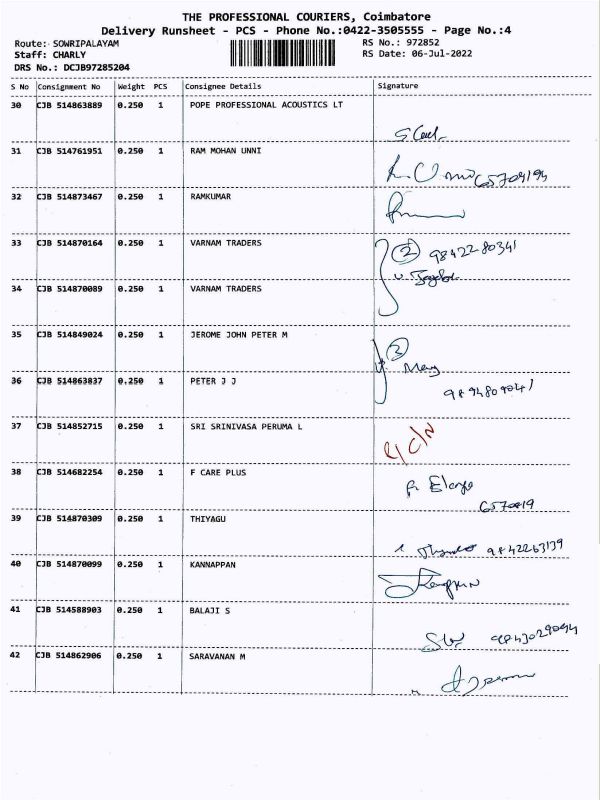 THE PROFESSIONAL COURIERS, Coimbatore
Delivery Runsheet - PCS - Phone No.:0422-3505555 - Page No.:4
Route: SOWRIPALAYAM RS No.: 972852
Staff: CHARLY RS Date: 06-Jul-2022
DRS No.: DCJB97285204
S No Consignment No Weight PCS Consignee Details Signature
30 CJB 514863889 0.250 1 POPE PROFESSIONAL ACOUSTICS LT
31 CJB 514761951 0.250 1 RAM MOHAN UNNI
32 CJB 514873467 0.250 1 RAMKUMAR
33 CJB 514870164 0.250 1 VARNAM TRADERS
2 9842280341
34 CJB 514870089 0.250 1 VARNAM TRADERS
35 CJB 514849024 0.250 1 JEROME JOHN PETER M
2
36 CJB 514863837 0.250 1 PETER J J
37 CJB 514852715 0.250 1 SRI SRINIVASA PERUMA L
38 CJB 514682254 0.250 1 F CARE PLUS
39 CJB 514870309 0.250 1 THIYAGU
9842263139
40 CJB 514870099 0.250 1 KANNAPPAN
41 CJB 514588903 0.250 1 BALAJI S
42 CJB 514862906 0.250 1 SARAVANAN M